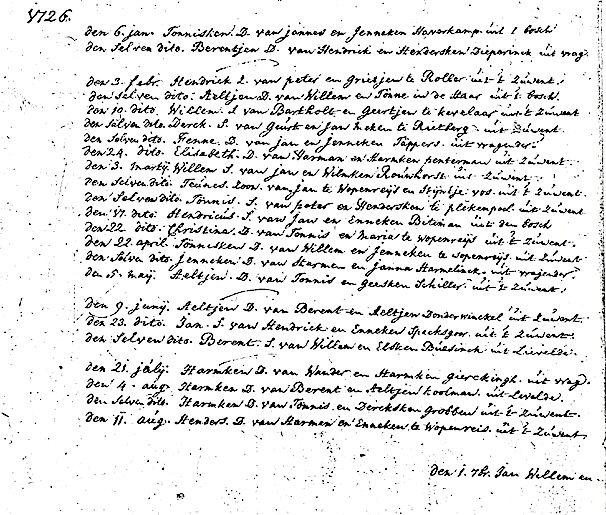 1726.
den 6. jan. Tonnisken. D. van jannes en Jenneken Haverkamp. uit t bosch
den Selven dito. Berentjen D. van Hendrick en Hendersken Dieparinck uit vrag.
den 3. febr. Hendrick Z. van peter en Grietjen te Roller uit 't Zuwent.
den selven dito. Aeltjen D. van Willem en Tonne in de Haar uit 't bosch.
den 10. dito. Willem. S. van Bartholt en Geertjen te kevelaar uit 't Zuwent
den Selven dito. Derck. S. van Geurt en Jenneken te Rietberg uit Zuwent.
den Selven dito. Henne. D. van jan en Jenneken Tappers. uit vragender.
den 24. dito. Elisabeth. D. van Harman en Harmken penterman uit Zuwent.
den 3. martij. Willem S. van jan en Wilmken Rouwhorst uit Zuwent.
den Selven dito. Teunes. Zoon. van jan te Wopenreijs en Stijntje vos. uit 't Zuwent.
den Selven dito. Tonnis. S. van peter en Hendersken te plekenpoel. uit Zuwent
den 17. dito. Hendricus S. van Jan en Enneken Bileman uit den bosch
den 22. dito. Christina. D. van Tonnis en maria te wopenreijs uit 't Zuwent.
den 22. april. Tonnesken D. van Willem en Jenneken te wopenreijs. uit Zuwent
den Selven dito. Jenneken D. van Harmen en Janna Harmelinck. uit vragender
den 5. meij. Aeltjen. D. van Tonnis en Geesken Schiller. uit 't Zuwent.
den 9. junij. Aeltjen D. van Berent en Aeltjen Donderwinckel uit Zuwent.
den 23. dito. Jan. S. van Hendrick en Enneken Specksgoor. uit 't Zuwent.
den Selven dito. Berent. S. van Willem en Elsken Buesinck uit Lievelde.
den 21. julij. Harmken D. van Wander en Harmken gierckingh. uit vrag.
den 4. aug. Harmken D. van Berent en Aeltjen koolman. uit Levelde.
den Selven dito. Harmken D. van Tonnis en Dercksken Grobben uit 't Zuwent.
den 11. aug. Henders. D. van Harmen en Enneken te Wopenreis. uit 't Zuwent
den 1. 7br. Jan Willem en